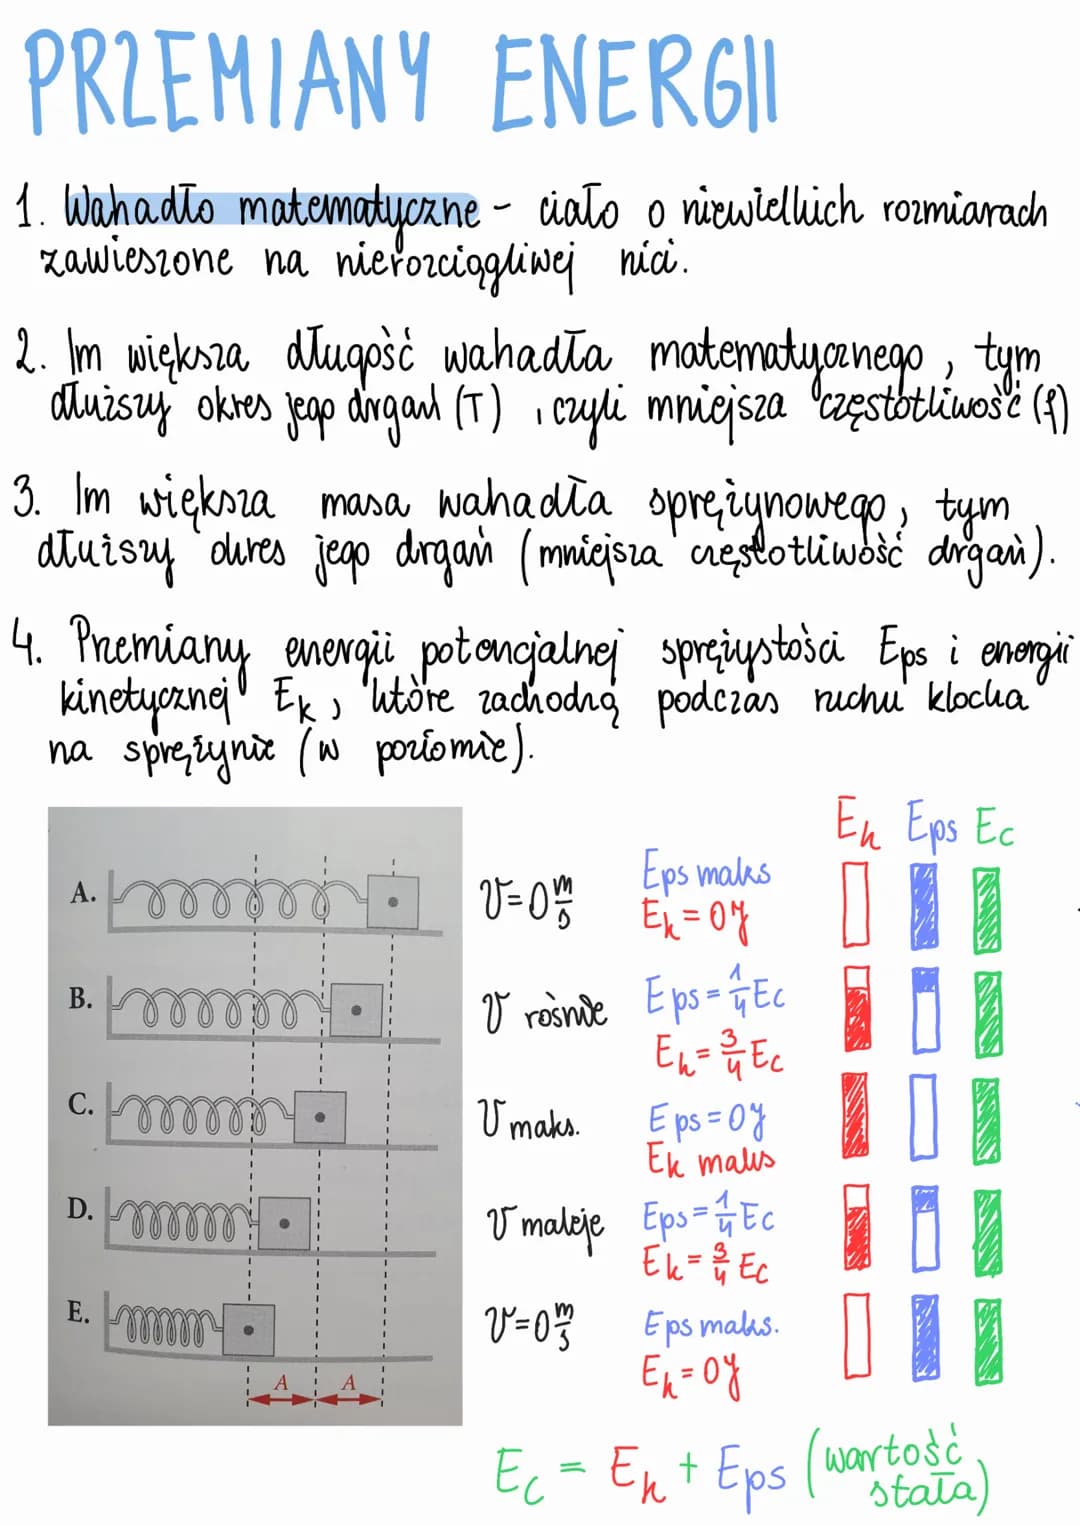 PRZEMIANY ENERGII
1. Wahadło matematyczne - ciało o niewielkich rozmiarach
zawieszone na nierozciągliwej nici.
2. Im większa długość wahadła matematycznego, tym
dłuższy okres jego drgań (T), czyli mniejsza częstotliwość (f)
3. Im większa masa wahadła sprężynowego, tym
dłuższy okres jego drgań (mniejsza częstotliwość drgań).
4. Przemiany energii potencjalnej sprężystości Eps i energii
kinetycznej Ek, które zachodzą podczas ruchu klocka
na sprężynie (w poziomie).
Ek Eps Ec
A. v=0 m/s Eps maks
Ek=0J
B. v rośnie Eps=1/4 Ec
Ek=3/4 Ec
C. v maks. Eps=0J
Ek maks
D. v maleje Eps=1/4 Ec
Ek=3/4 Ec
E. v=0 m/s Eps maks.
Ek=0J
A A
Ec = Ek + Eps (wartość
stała)